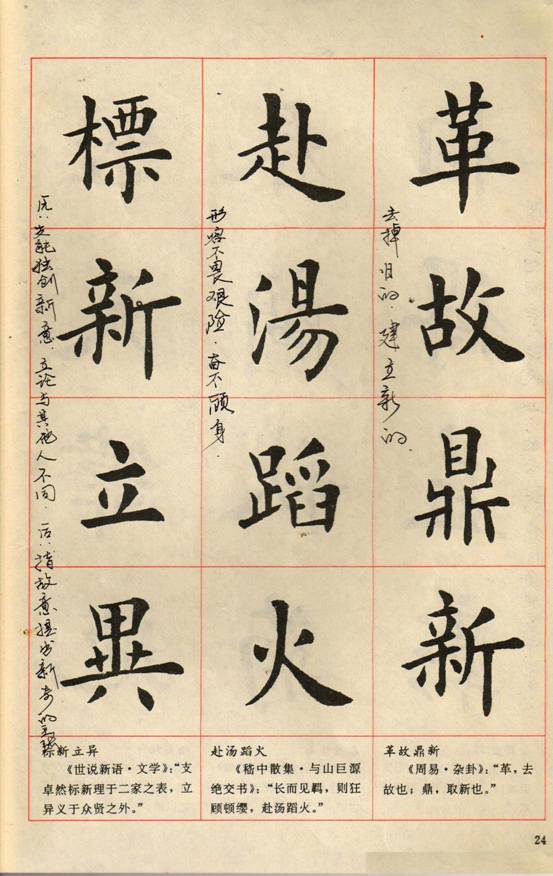 革故鼎新
去掉旧的.建立新的.
赴湯蹈火
形容不畏艰险.奋不顾身.
標新立異
能独创新意.立论与其他人不同.后:指故意提出新奇的主张
革故鼎新
《周易·杂卦》：“革，去
故也；鼎，取新也。”
赴汤蹈火
《嵇中散集·与山巨源
绝交书》：“长而见羁，则狂
顾顿缨，赴汤蹈火。”
标新立异
《世说新语·文学》：“支
卓然标新理于二家之表，立
异义于众贤之外。”
24